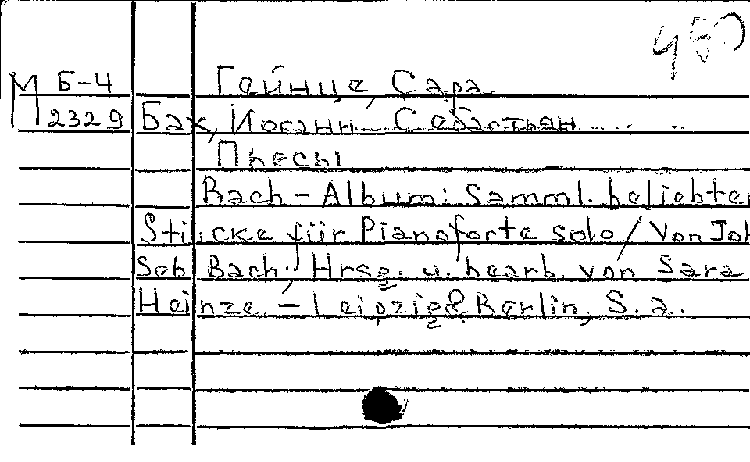 450
М Б-4 Гейнце, Сара
2329 Бах, Иоганн Себастьян
Пьесы
Bach-Album: Samml. beliebter
Stücke für Pianoforte solo / Von Joh.
Seb. Bach; Hrsg. u. bearb. von Sara
Heinze. – Leipzig & Berlin, S. a.